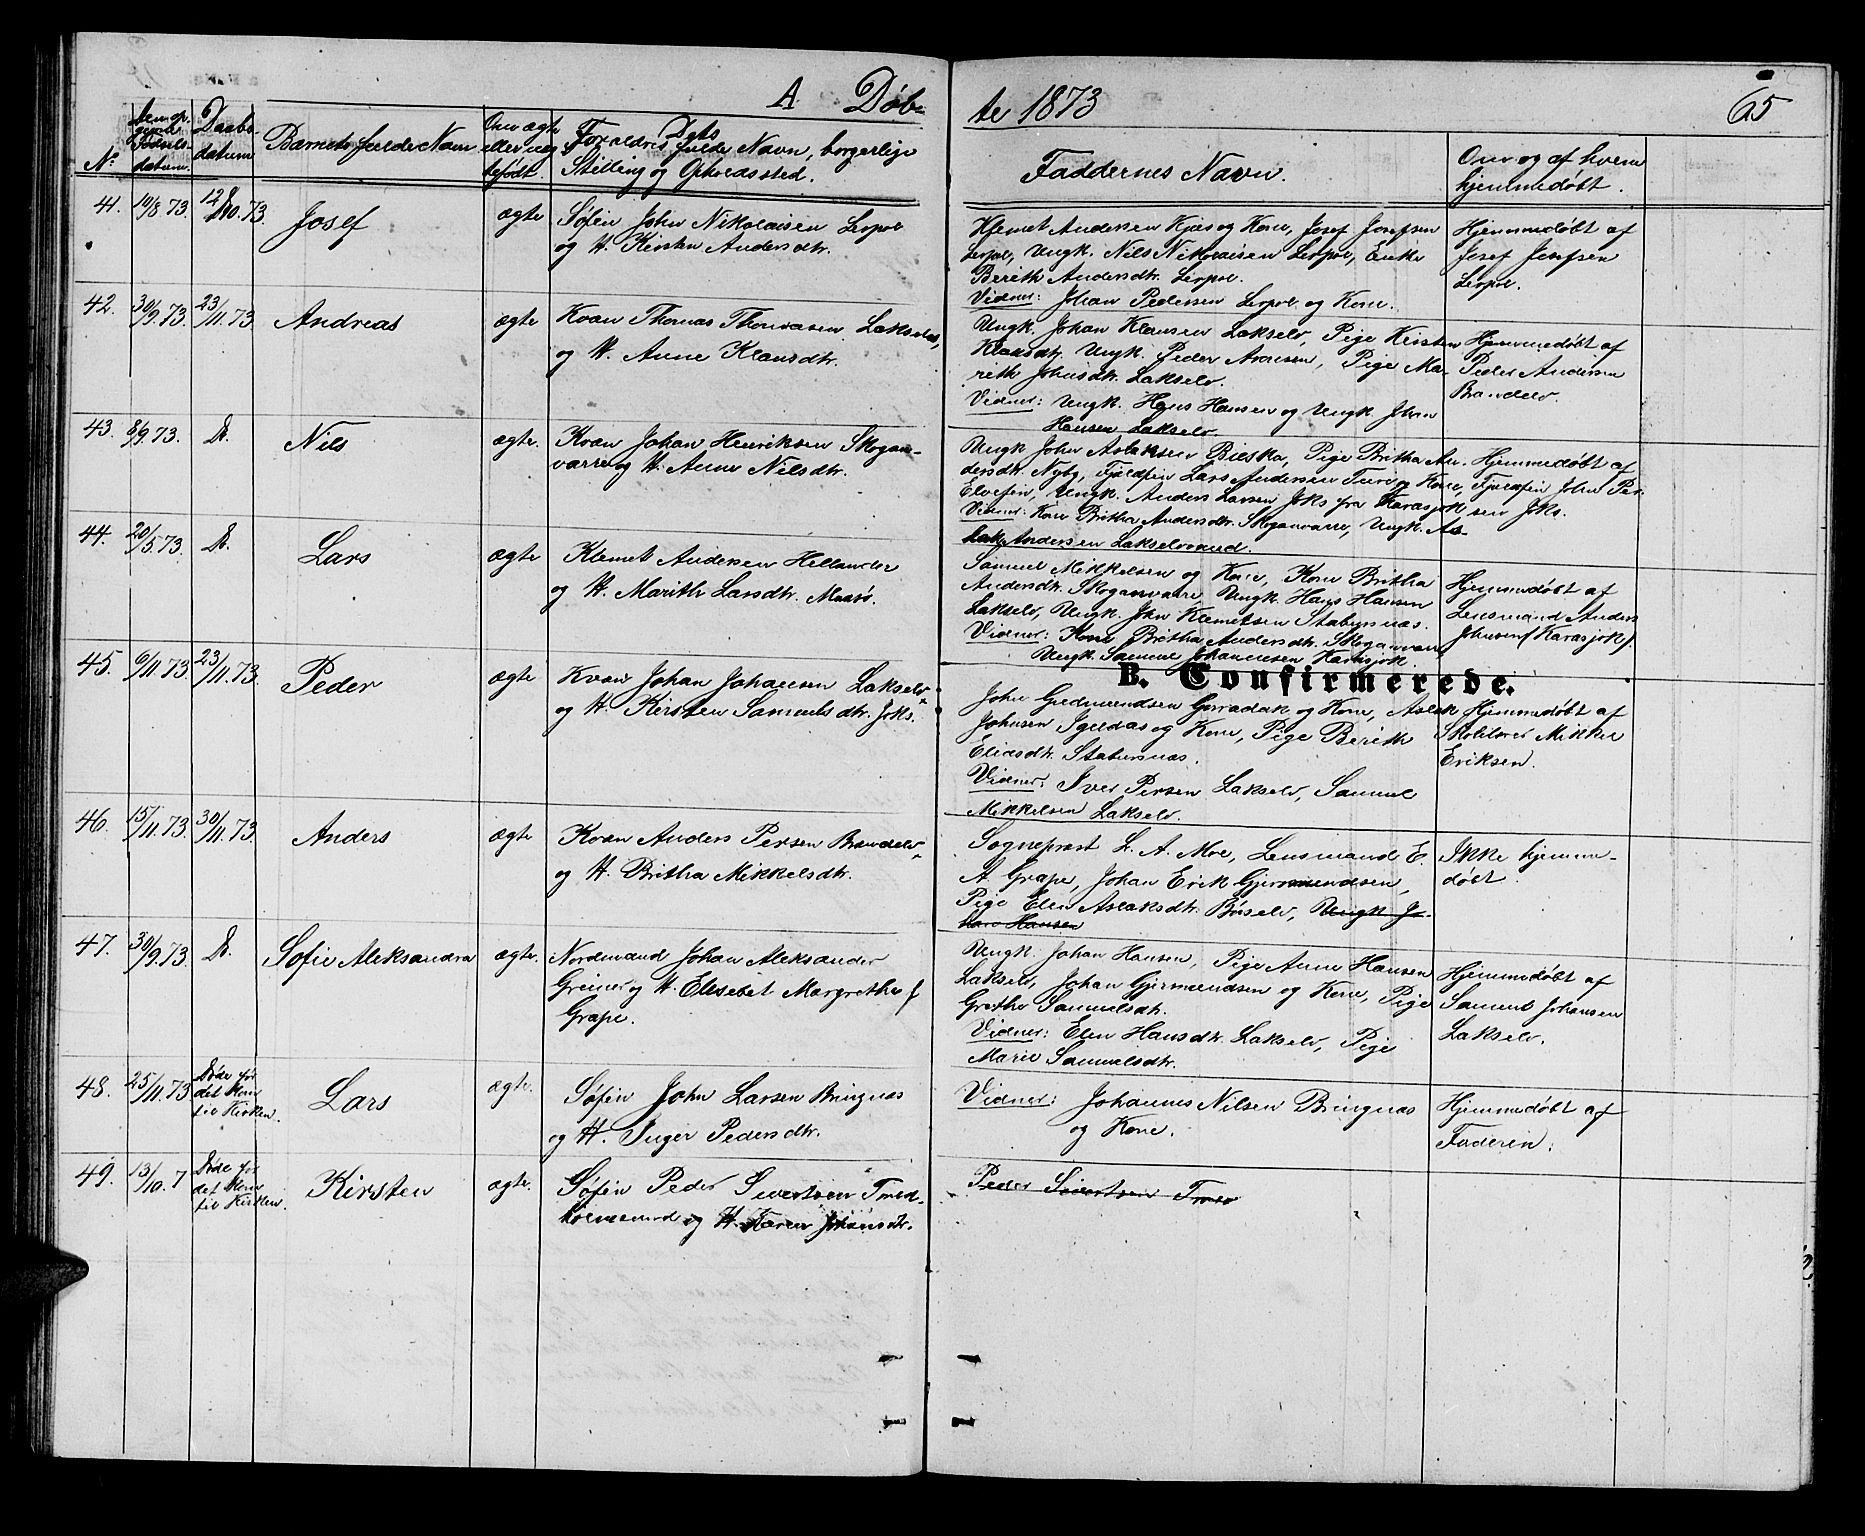 A Døb-
te 1873
65
No
Den op-
givne
Fødsels-
datum.
Daabs-
datum
Barnets fulde Navn
Om ægte
eller uæg-
tefødt.
Dets
Forældres fulde Navn, borgerlige
Stilling og Opholdssted.
Faddernes Navn.
Om og af hvem
hjemmedøbt.
41.
10/8 73.
12/10. 73.
Josef
ægte
Søfin John Nikolaisen Leirpol
og H. Kirsten Andersdtr.
Klemet Andersen Kjæs og Kone, Josef Josefsen
Leirpol, Ungk. Nils Nikolaisen Leirpol, Enke
Berith Andersdtr. Leirpol.
Vidner: Johan Pedersen Leirpol og Kone.
Hjemmedøbt af
Josef Josefsen
Leirpol.
42.
30/9. 73.
23/11. 73.
Andreas
ægte
Kvæn Thomas Thomasen Lakselv,
og H. Anne Klausdtr.
Ungk. Johan Klausen Lakselv, Pige Kirsten
Klausdtr. Ungk. Peder Aronsen, Pige Ma-
rith Johnsdtr. Lakselv.
Vidner: Ungk. Hans Hansen og Ungk. Johan
Hansen Lakselv.
Hjemmedøbt af
Peder Andersen
Brandelv.
43.
8/9. 73.
D.
Nils
ægte.
Kvæn Johan Henriksen Skogan-
varre og H. Anne Nilsdtr.
Ungk John Aslaksen Bieska, Pige Britha An-
dersdtr. Nybg, Fjeldfin Lars Andersen Ture og Kone,
Elvefin, Ungk. Anders Larsen Joks fra Karasjok
Vidner: Kone Britha Andersdtr. Skoganvarre, Ungk. As-
lak Andersen Lakselvmund.
Hjemmedøbt af
Fjeldfin John Per-
sen Joks.
44.
20/5. 73.
D.
Lars
ægte
Klemet Andersen Hellander
og H. Marith Larsdtr. Maasø.
Samuel Mikkelsen og Kone, Kone Britha
Andersdtr. Skoganvarre Ungk. Hans Hansen
Lakselv, Ungk. John Klemetsen Stabursnæs.
Vidner: Kone Britha Andersdtr. Skoganvarre
Ungk. Samuel Johannesen Karasjok.
Hjemmedøbt af
Lensmand Anders
Johnsen (Karasjok).
B. Confirmerede.
45.
6/11. 73
23/11. 73.
Peder
ægte
Kvæn Johan Johansen Lakselv
og H. Kirsten Samuelsdtr. Joks.
John Gudmundsen Gavradak og Kone, Aslak
Johnsen Igeldas og Kone, Pige Berith
Eliasdtr. Stabursnæs.
Vidner: Iver Persen Lakselv, Samuel
Mikkelsen Lakselv.
Hjemmedøbt af
Skolelærer Mikkel
Eriksen.
46.
15/11. 73.
30/11. 73.
Anders
ægte
Kvæn Anders Persen Brandelv
og H. Britha Mikkelsdtr.
Sognepræst L. A. Moe, Lensmand E.
A Grape, Johan Erik Gjermundsen,
Pige Elen Aslaksdtr. Børselv, Ungk Jo-
han Hansen
Ikke hjemme-
døbt.
47.
30/9. 73.
D.
Sofie Aleksandra
ægte.
Nordmand Johan Aleksander
Greiner og H. Elisebet Margrethe f
Grape.
Ungk. Johan Hansen, Pige Anne Hansen
Lakselv, Johan Gjermundsen og Kone, Pige
Grethe Samuelsdtr.
Vidner: Elen Hansdtr. Lakselv, Pige
Marie Samuelsdtr.
Hjemmedøbt af
Samuel Johansen
Lakselv.
48.
25/11. 73
Døde før
det Kom
til Kirken.
Lars
ægte.
Søfin John Larsen Bringnæs
og H. Inger Pedersdtr.
Vidner: Johannes Nilsen Bringnæs
og Kone.
Hjemmedøbt af
Faderen.
49.
13/10. 7
Døde før
det Kom
til Kirken.
Kirsten
ægte.
Søfin Peder Sivertsen Trold-
holmsund og H. Karen Johansdtr.
Peder Sivertsen